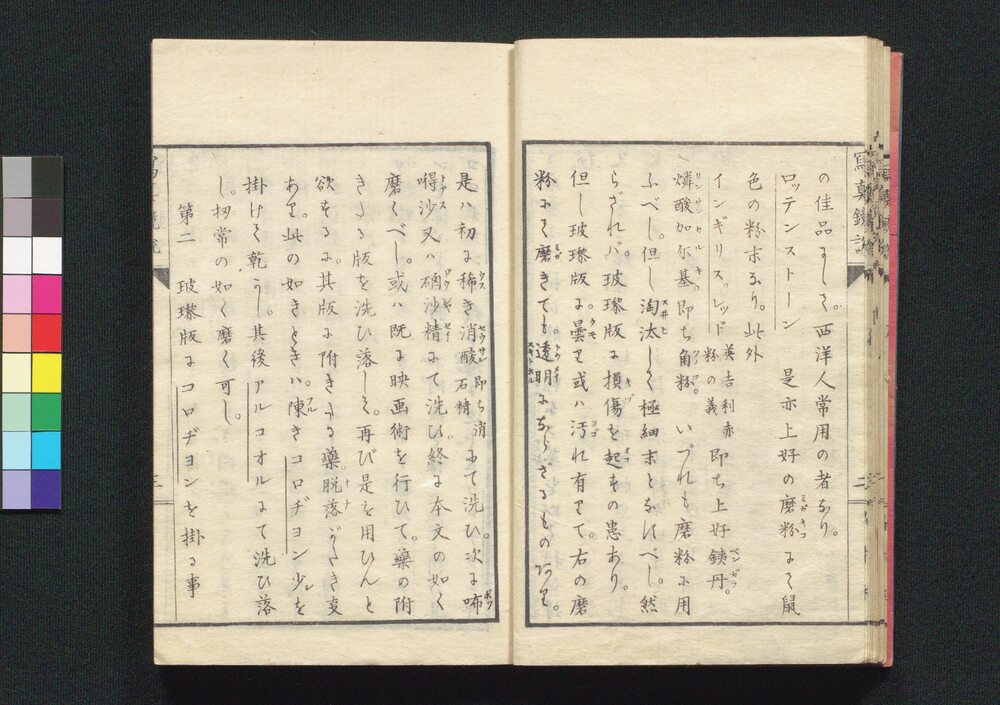 の佳品にして。西洋人常用の者なり。
ロッテンストーン 是亦上好の磨粉にて鼠
色の粉末なり。此外
インギリス。レッド 英吉利赤粉の義 即ち上好銕丹。
燐酸加尓基。即ち角粉。いづれも磨粉に用
ふべし。但し淘汰して極細末となすべし。然
らざれバ。玻瓈版に損傷を起すの患あり。
但し玻瓈版に曇り或ハ汚れ有りて。右の磨
粉にて磨きても透明にならざるもの有り。
是ハ初に稀き消酸 即ち消石精 にて洗ひ。次に㖹
嘚沙又ハ硇沙精にて洗ひ。終に本文の如く
磨くべし。或ハ既に映画術を行ひて。藥の附
きたる版を洗ひ落して。再び是を用ひんと
欲するに。其版に附きたる藥脱落しがたき㕝
あり。此の如きときハ。陳きコロヂヨン少を
掛けて乾かし。其後アルコオルにて洗ひ落
し。扨常の如く磨く可し。
第二 玻瓈版にコロヂヨンを掛る事
寫真鏡説
二
三